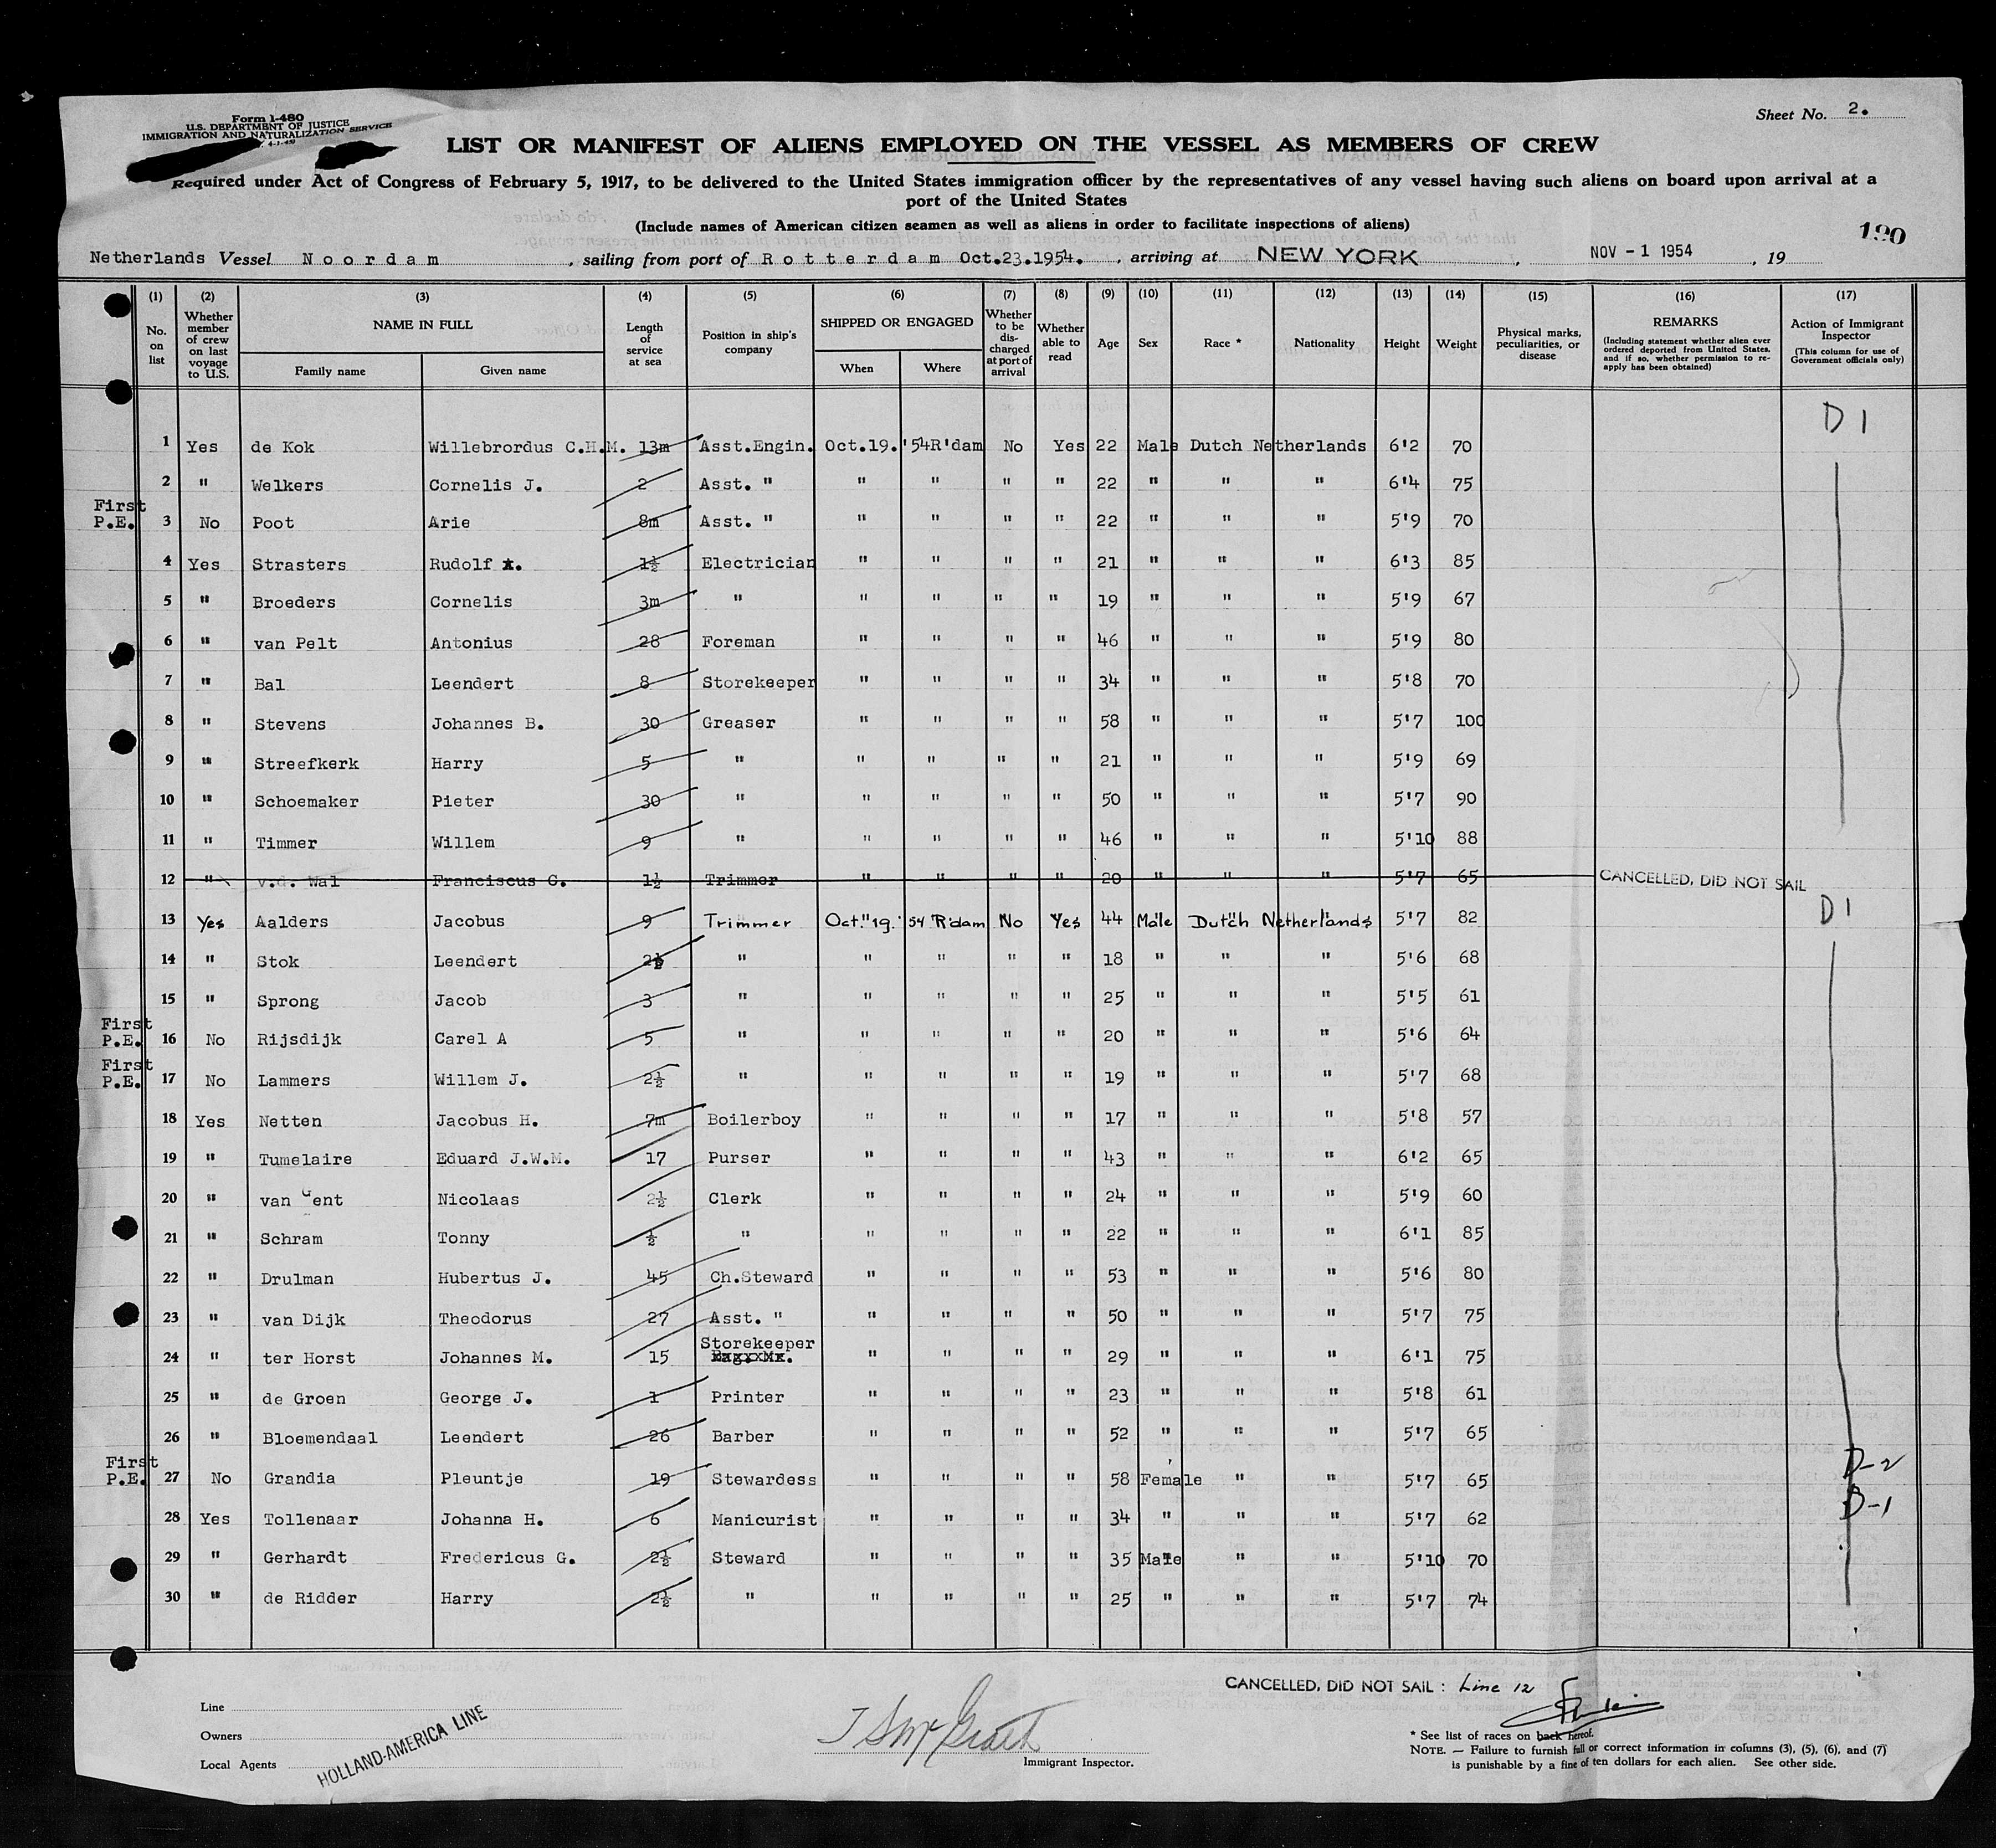 Form I-480
U.S. DEPARTMENT OF JUSTICE
IMMIGRATION AND NATURALIZATION SERVICE
4-1-45)
Sheet No. 2.
LIST OR MANIFEST OF ALIENS EMPLOYED ON THE VESSEL AS MEMBERS OF CREW
Required under Act of Congress of February 5, 1917, to be delivered to the United States immigration officer by the representatives of any vessel having such aliens on board upon arrival at a
port of the United States
(Include names of American citizen seamen as well as aliens in order to facilitate inspections of aliens)
190
Netherlands Vessel Noordam, sailing from port of Rotterdam Oct.23.1954., arriving at NEW YORK, NOV - 1 1954, 19
(1) (2) (3) (4) (5) (6) (7) (8) (9) (10) (11) (12) (13) (14) (15) (16) (17)
No. on list
Whether member of crew on last voyage to U.S.
NAME IN FULL
Family name Given name
Length of service at sea
Position in ship's company
SHIPPED OR ENGAGED
When Where
Whether to be discharged at port of arrival
Whether able to read
Age Sex Race * Nationality Height Weight
Physical marks, peculiarities, or disease
REMARKS
(Including statement whether alien ever ordered deported from United States, and if so, whether permission to reapply has been obtained)
Action of Immigrant Inspector
(This column for use of Government officials only)
D 1
1 Yes de Kok Willebrordus C.H.M. 13m Asst.Engin. Oct.19.'54 R'dam No Yes 22 Male Dutch Netherlands 6'2 70
2 " Welkers Cornelis J. 2 Asst. " " " " " 22 " " " 6'4 75
First P.E. 3 No Poot Arie 8m Asst. " " " " " 22 " " " 5'9 70
4 Yes Strasters Rudolf 1½ Electrician " " " " 21 " " " 6'3 85
5 " Broeders Cornelis 3m " " " " " 19 " " " 5'9 67
6 " van Pelt Antonius 28 Foreman " " " " 46 " " " 5'9 80
7 " Bal Leendert 8 Storekeeper " " " " 34 " " " 5'8 70
8 " Stevens Johannes B. 30 Greaser " " " " 58 " " " 5'7 100
9 " Streefkerk Harry 5 " " " " " 21 " " " 5'9 69
10 " Schoemaker Pieter 30 " " " " " 50 " " " 5'7 90
11 " Timmer Willem 9 " " " " " 46 " " " 5'10 88
12 " v.d. Wal Franciscus G. 1½ Trimmer " " " " 20 " " " 5'7 65 CANCELLED, DID NOT SAIL
13 Yes Aalders Jacobus 9 Trimmer Oct. 19.' 54 R'dam No Yes 44 Male Dutch Netherlands 5'7 82 D 1
14 " Stok Leendert 2½ " " " " " 18 " " " 5'6 68
15 " Sprong Jacob 3 " " " " " 25 " " " 5'5 61
First P.E. 16 No Rijsdijk Carel A 5 " " " " " 20 " " " 5'6 64
First P.E. 17 No Lammers Willem J. 2½ " " " " " 19 " " " 5'7 68
18 Yes Netten Jacobus H. 7m Boilerboy " " " " 17 " " " 5'8 57
19 " Tumelaire Eduard J.W.M. 17 Purser " " " " 43 " " " 6'2 65
20 " van Gent Nicolaas 2½ Clerk " " " " 24 " " " 5'9 60
21 " Schram Tonny ½ " " " " " 22 " " " 6'1 85
22 " Drulman Hubertus J. 45 Ch.Steward " " " " 53 " " " 5'6 80
23 " van Dijk Theodorus 27 Asst. " " " " " 50 " " " 5'7 75
24 " ter Horst Johannes M. 15 Storekeeper " " " " 29 " " " 6'1 75
25 " de Groen George J. 1 Printer " " " " 23 " " " 5'8 61
26 " Bloemendaal Leendert 26 Barber " " " " 52 " " " 5'7 65
First P.E. 27 No Grandia Pleuntje 19 Stewardess " " " " 58 Female " " 5'7 65 D-2
28 Yes Tollenaar Johanna H. 6 Manicurist " " " " 34 " " " 5'7 62 D-1
29 " Gerhardt Fredericus G. 2½ Steward " " " " 35 Male " " 5'10 70
30 " de Ridder Harry 2½ " " " " " 25 " " " 5'7 74
CANCELLED, DID NOT SAIL : Line 12
Line
Owners
Local Agents
HOLLAND-AMERICA LINE
Immigrant Inspector.
* See list of races on back hereof.
NOTE. — Failure to furnish full or correct information in columns (3), (5), (6), and (7)
is punishable by a fine of ten dollars for each alien. See other side.